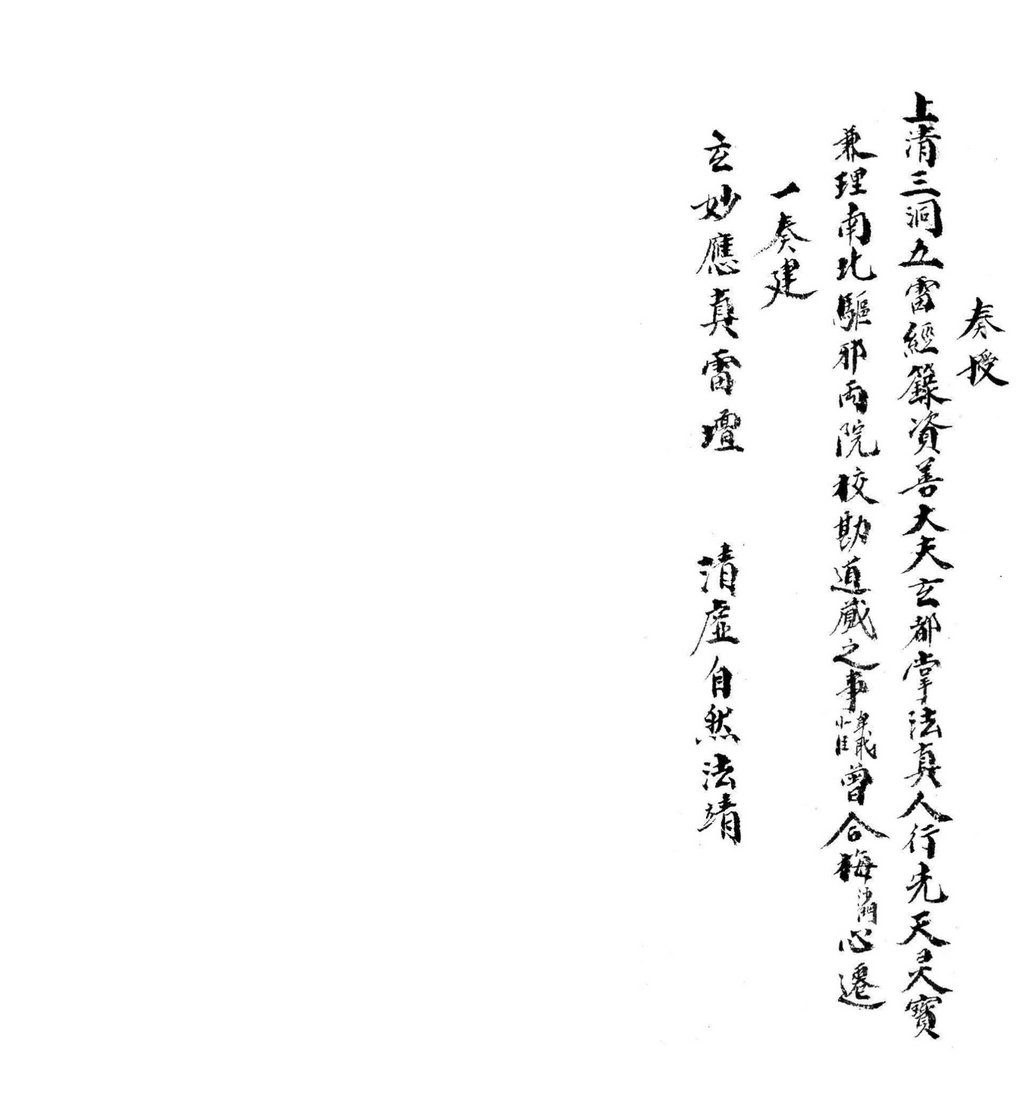 奏授
上清三洞五雷經籙資善大夫玄都掌法真人行先天灵寶
兼理南北驅邪両院校勘道藏之事小臣曾合梅心遷
一奏建
玄妙應真雷壇 清虛自然法靖